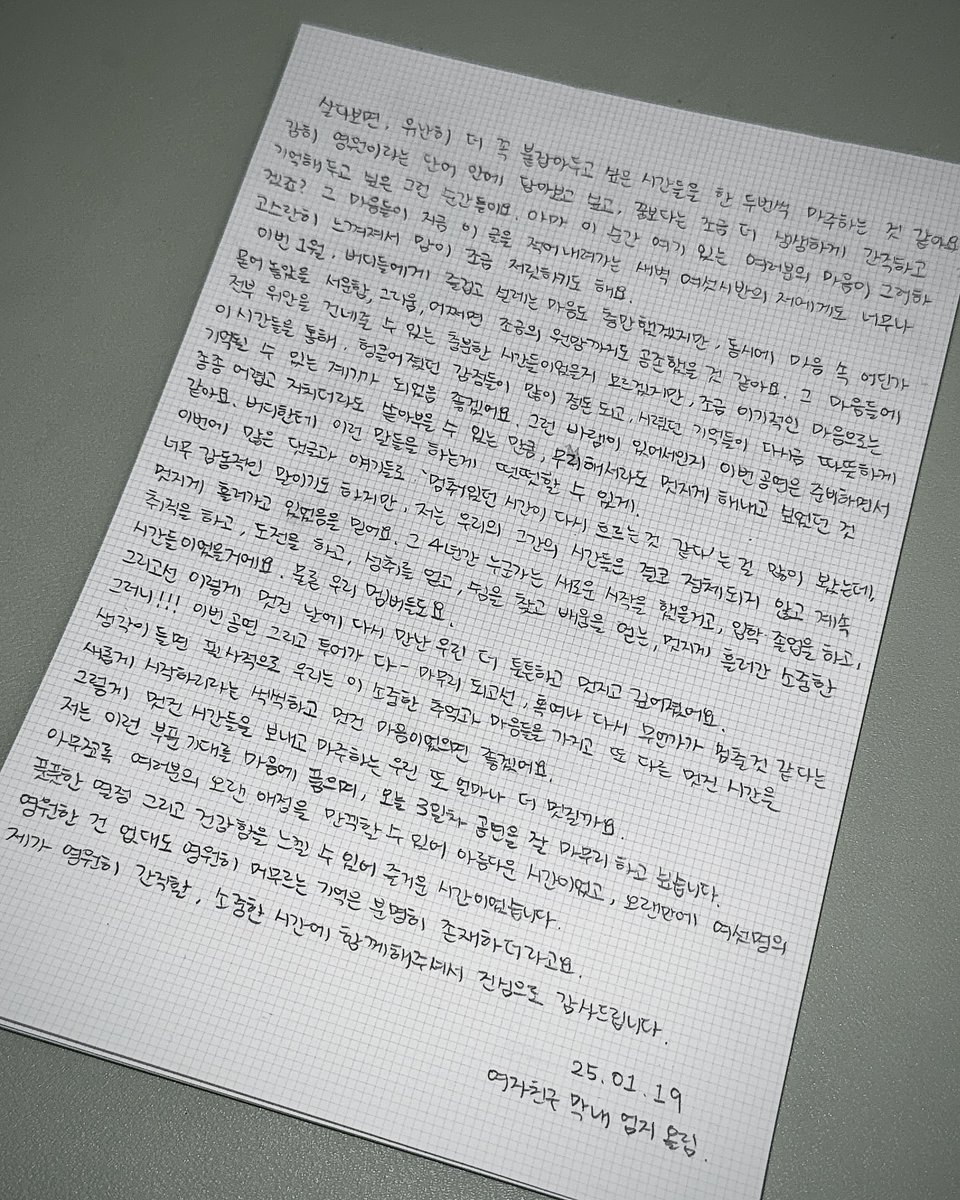 살다보면, 유난히 더 꼭 붙잡아두고 싶은 시간들을 한 두번씩 마주하는 것 같아요
감히 영원이라는 단어 안에 담아보고 싶고, 꿈보다는 조금 더 생생하게 간직하고
기억해두고 싶은 그런 순간들이요. 아마 이 순간 여기 있는 여러분의 마음이 그러하
겠죠? 그 마음들이 지금 이 글을 적어내려가는 새벽 여섯시반의 저에게도 너무나
고스란히 느껴져서 맘이 조금 저릿하기도 해요.
이번 1월, 버디들에게 즐겁고 설레는 마음도 충만했겠지만, 동시에 마음 속 어딘가
묻어놓았을 서운함, 그리움, 어쩌면 조금의 원망까지도 공존했을 것 같아요. 그 마음들에
전부 위안을 건네줄 수 있는 충분한 시간들이었을지 모르겠지만, 조금 이기적인 마음으로는
이 시간들을 통해, 헝클어졌던 감정들이 많이 정돈되고, 서렸던 기억들이 다시금 따뜻하게
기억될 수 있는 계기가 되었음 좋겠어요. 그런 바램이 있어서인지 이번 공연은 준비하면서
종종 어렵고 지치더라도 쏟아부을 수 있는 만큼, 무리해서라도 멋지게 해내고 싶었던 것
같아요. 버디한테 이런 말들을 하는게 떳떳할 수 있게.
이번에 많은 댓글과 얘기들로 '멈춰있던 시간이 다시 흐르는 것 같다'는 걸 많이 봤는데,
너무 감동적인 말이기도 하지만, 저는 우리의 그간의 시간들은 결코 정체되지 않고 계속
멋지게 흘러가고 있었음을 믿어요. 그 4년간 누군가는 새로운 시작을 했을거고, 입학·졸업을 하고,
취직을 하고, 도전을 하고, 성취를 얻고, 쉼을 찾고 배움을 얻는, 멋지게 흘러간 소중한
시간들이었을거에요. 물론 우리 멤버들도요.
그리고선 이렇게 멋진 날에 다시 만난 우린 더 돈독하고 멋지고 깊어졌어요.
그러니!!! 이번 공연 그리고 투어가 다- 마무리 되고선, 혹여나 다시 무언가가 멈출것 같다는
생각이 들면 필사적으로 우리는 이 소중한 추억과 마음들을 가지고 또 다른 멋진 시간을
새롭게 시작하리라는 씩씩하고 멋건 마음이었으면 좋겠어요.
그렇게 멋진 시간들을 보내고 마주하는 우린 또 얼마나 더 멋질까요.
저는 이런 부푼 기대를 마음에 품으며, 오늘 3일차 공연을 잘 마무리 하고 싶습니다.
아무쪼록 여러분의 오랜 애정을 만끽할 수 있어 아름다운 시간이었고, 오랜만에 여섯명의
풋풋한 열정 그리고 건강함을 느낄 수 있어 즐거운 시간이었습니다.
영원한 건 없대도 영원히 머무르는 기억은 분명히 존재하더라고요.
제가 영원히 간직할, 소중한 시간에 함께해주셔서 진심으로 감사드립니다.
25.01.19
여자친구 막내 엄지 올림.